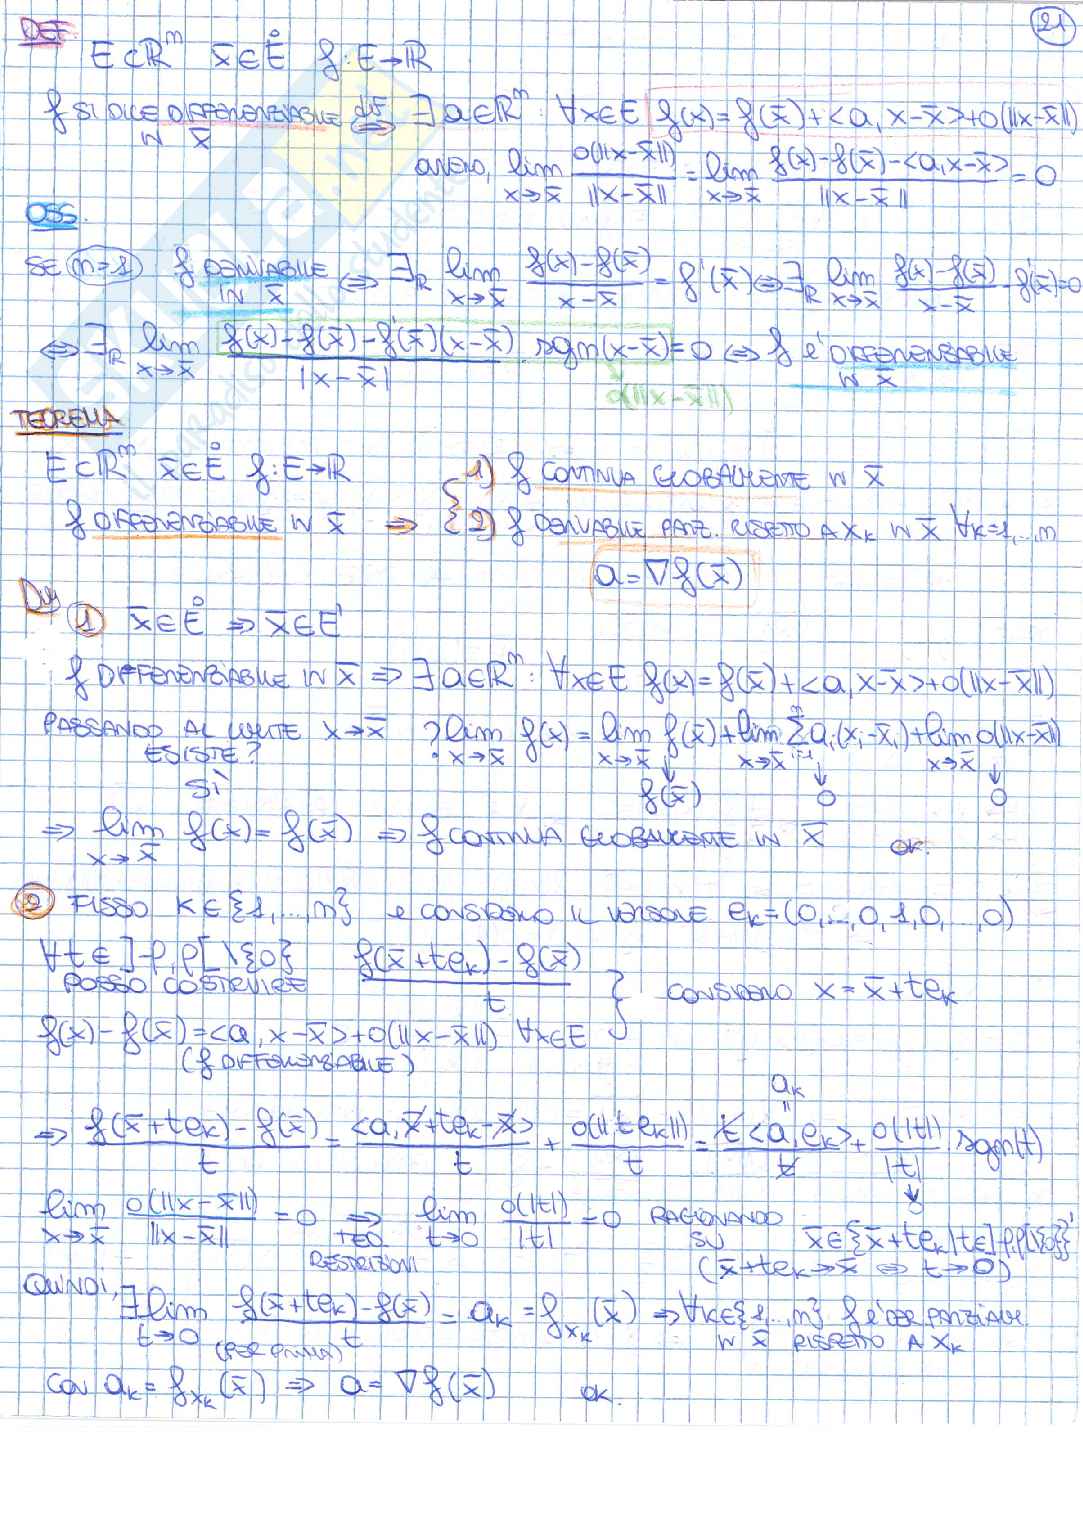 21
DEF.
E⊂ℝⁿ x̄∈E̊ f:E→ℝ
f SI DICE DIFFERENZIABILE IN x̄ ⇔(def) ∃ a∈ℝⁿ: ∀x∈E f(x)=f(x̄)+<a, x-x̄>+o(||x-x̄||)
OVVERO, lim_{x→x̄} o(||x-x̄||)/||x-x̄|| = lim_{x→x̄} (f(x)-f(x̄)-<a,x-x̄>)/||x-x̄|| = 0
OSS.
SE n=1 f DERIVABILE IN x̄ ⇔ ∃_ℝ lim_{x→x̄} (f(x)-f(x̄))/(x-x̄) = f'(x̄) ⇔ ∃_ℝ lim_{x→x̄} (f(x)-f(x̄))/(x-x̄) - f'(x̄)=0
⇔ ∃_ℝ lim_{x→x̄} (f(x)-f(x̄)-f'(x̄)(x-x̄))/|x-x̄| · sgn(x-x̄)=0 ⇔ f è DIFFERENZIABILE IN x̄
o(||x-x̄||)
TEOREMA
E⊂ℝⁿ x̄∈E̊ f:E→ℝ
f DIFFERENZIABILE IN x̄ ⇒ { 1) f CONTINUA GLOBALMENTE IN x̄
2) f DERIVABILE PARZ. RISPETTO A x_k IN x̄ ∀k=1,...,n
a=∇f(x̄)
DIM
1 x̄∈E̊ ⇒ x̄∈E'
f DIFFERENZIABILE IN x̄ ⇒ ∃ a∈ℝⁿ: ∀x∈E f(x)=f(x̄)+<a, x-x̄>+o(||x-x̄||)
PASSANDO AL LIMITE x→x̄ ? lim_{x→x̄} f(x) = lim_{x→x̄} f(x̄) + lim_{x→x̄} Σ_{i=1}^n a_i(x_i-x̄_i) + lim_{x→x̄} o(||x-x̄||)
ESISTE?
SÌ
↓ f(x̄) ↓ 0 ↓ 0
⇒ lim_{x→x̄} f(x) = f(x̄) ⇒ f CONTINUA GLOBALMENTE IN x̄ OK.
2 FISSO K∈{1,...,n} e CONSIDERO IL VERSORE e_k=(0,...,0,1,0,...,0)
∀t∈]-ρ,ρ[\{0} POSSO COSTRUIRE (f(x̄+te_k)-f(x̄))/t
} CONSIDERO x=x̄+te_k
f(x)-f(x̄)=<a, x-x̄>+o(||x-x̄||) ∀x∈E
(f DIFFERENZIABILE)
a_k
"
⇒ (f(x̄+te_k)-f(x̄))/t = <a, x̄+te_k-x̄>/t + o(||te_k||)/t = t<a,e_k>/t + o(|t|)/|t| · sgn(t)
↓ 0
lim_{x→x̄} o(||x-x̄||)/||x-x̄|| = 0 ⇒ (TEO RESTRIZIONI) lim_{t→0} o(|t|)/|t| = 0 RAGIONANDO SU x̄∈{x̄+te_k | t∈]-ρ,ρ[\{0}}'
(x̄+te_k→x̄ ⇔ t→0)
QUINDI, ∃ lim_{t→0} (f(x̄+te_k)-f(x̄))/t = a_k = f_{x_k}(x̄) ⇒ ∀k∈{1,...,n} f è DER PARZIALM.
(PER PRIMA) IN x̄ RISPETTO A x_k
CON a_k = f_{x_k}(x̄) ⇒ a = ∇f(x̄) OK.